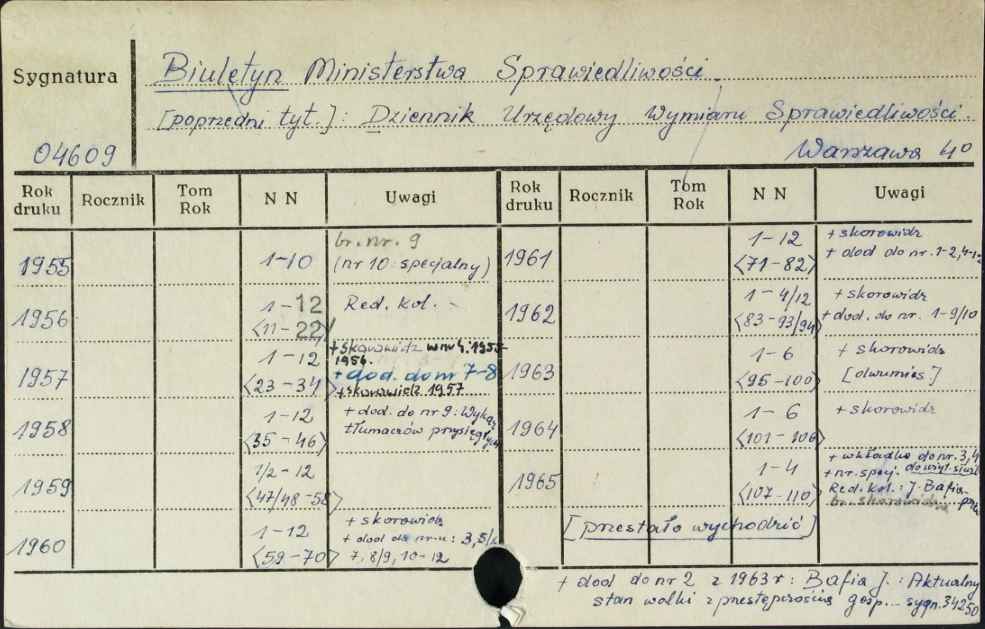 Sygnatura
Biuletyn Ministerstwa Sprawiedliwości.
[poprzedni tyt.]: Dziennik Urzędowy Wymiaru Sprawiedliwości.
04609
Warszawa 4º
Rok druku Rocznik Tom Rok N N Uwagi Rok druku Rocznik Tom Rok N N Uwagi
1955 1-10 br. nr. 9
(nr 10: specjalny)
1956 1-12 Red. kol.
<11-22>
1957 1-12 + skorowidz w nr 4. 1955-
1956.
<23-34> + dod. do nr 7-8
+ skorowidz 1957
1958 1-12 + dod. do nr 9: Wykaz
<35-46> tłumaczów przysięgłych
1959 1/2-12
<47/48-58>
1960 1-12 + skorowidz
<59-70> + dod do nr-u: 3, 5/6
7, 8/9, 10-12
1961 1-12 + skorowidz
<71-82> + dod do nr. 1-2, 4-12
1962 1-4/12 + skorowidz
<83-93/94> + dod. do nr. 1-9/10
1963 1-6 + skorowidz
<95-100> [dwumies]
1964 1-6 + skorowidz
<101-106>
1965 1-4 + wkładka do nr. 3,4
<107-110> + nr. specj.
Red. kol.: J. Bafia
br. skorowidza
[przestało wychodzić]
+ dod do nr 2 z 1963 r: Bafia J.: Aktualny
stan walki z przestępczością gosp... sygn. 34250